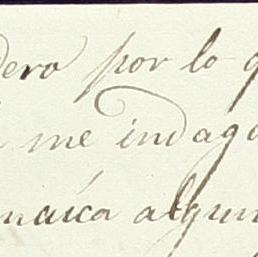 dero por lo q
me indaga
maica algun